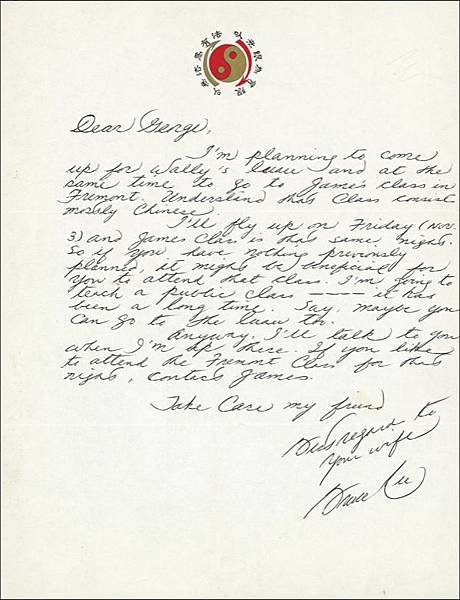 以無法為有法 以無限為有限
Dear George,
I'm planning to come
up for Wally's luau and at the
same time to go to James class in
Fremont. Understand that Class consist
mostly Chinese.
I'll fly up on Friday (Nov.
3) and James Class is that same night.
So if you have nothing previously
planned, it might be beneficial for
you to attend that class. I'm going to
teach a public class ———— it has
been a long time. Say, maybe you
can go to the luau too.
Anyway, I'll talk to you
when I'm up there. If you like
to attend the Fremont Class for that
night, contact James.
Take Care my friend
Best regard to
your wife
Bruce Lee